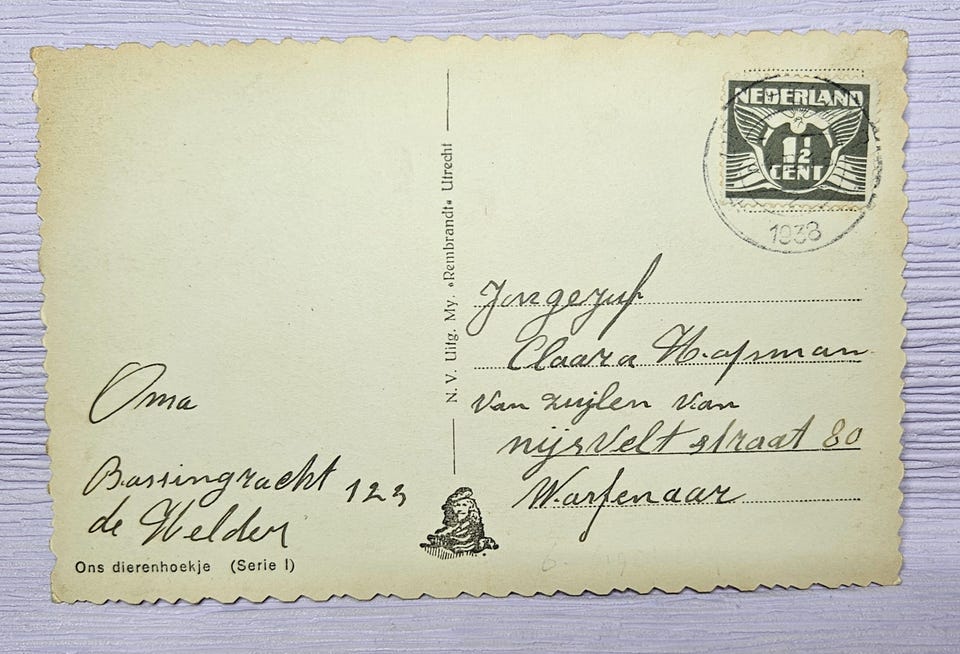 NEDERLAND
1½
CENT
1938
N.V. Uitg. My. «Rembrandt» Utrecht
Jongejuf
Claara Hofsman
van zuijlen van
nijsvelt straat 80
Wassenaar
Oma
Bassingracht 123
de Helder
Ons dierenhoekje (Serie I)